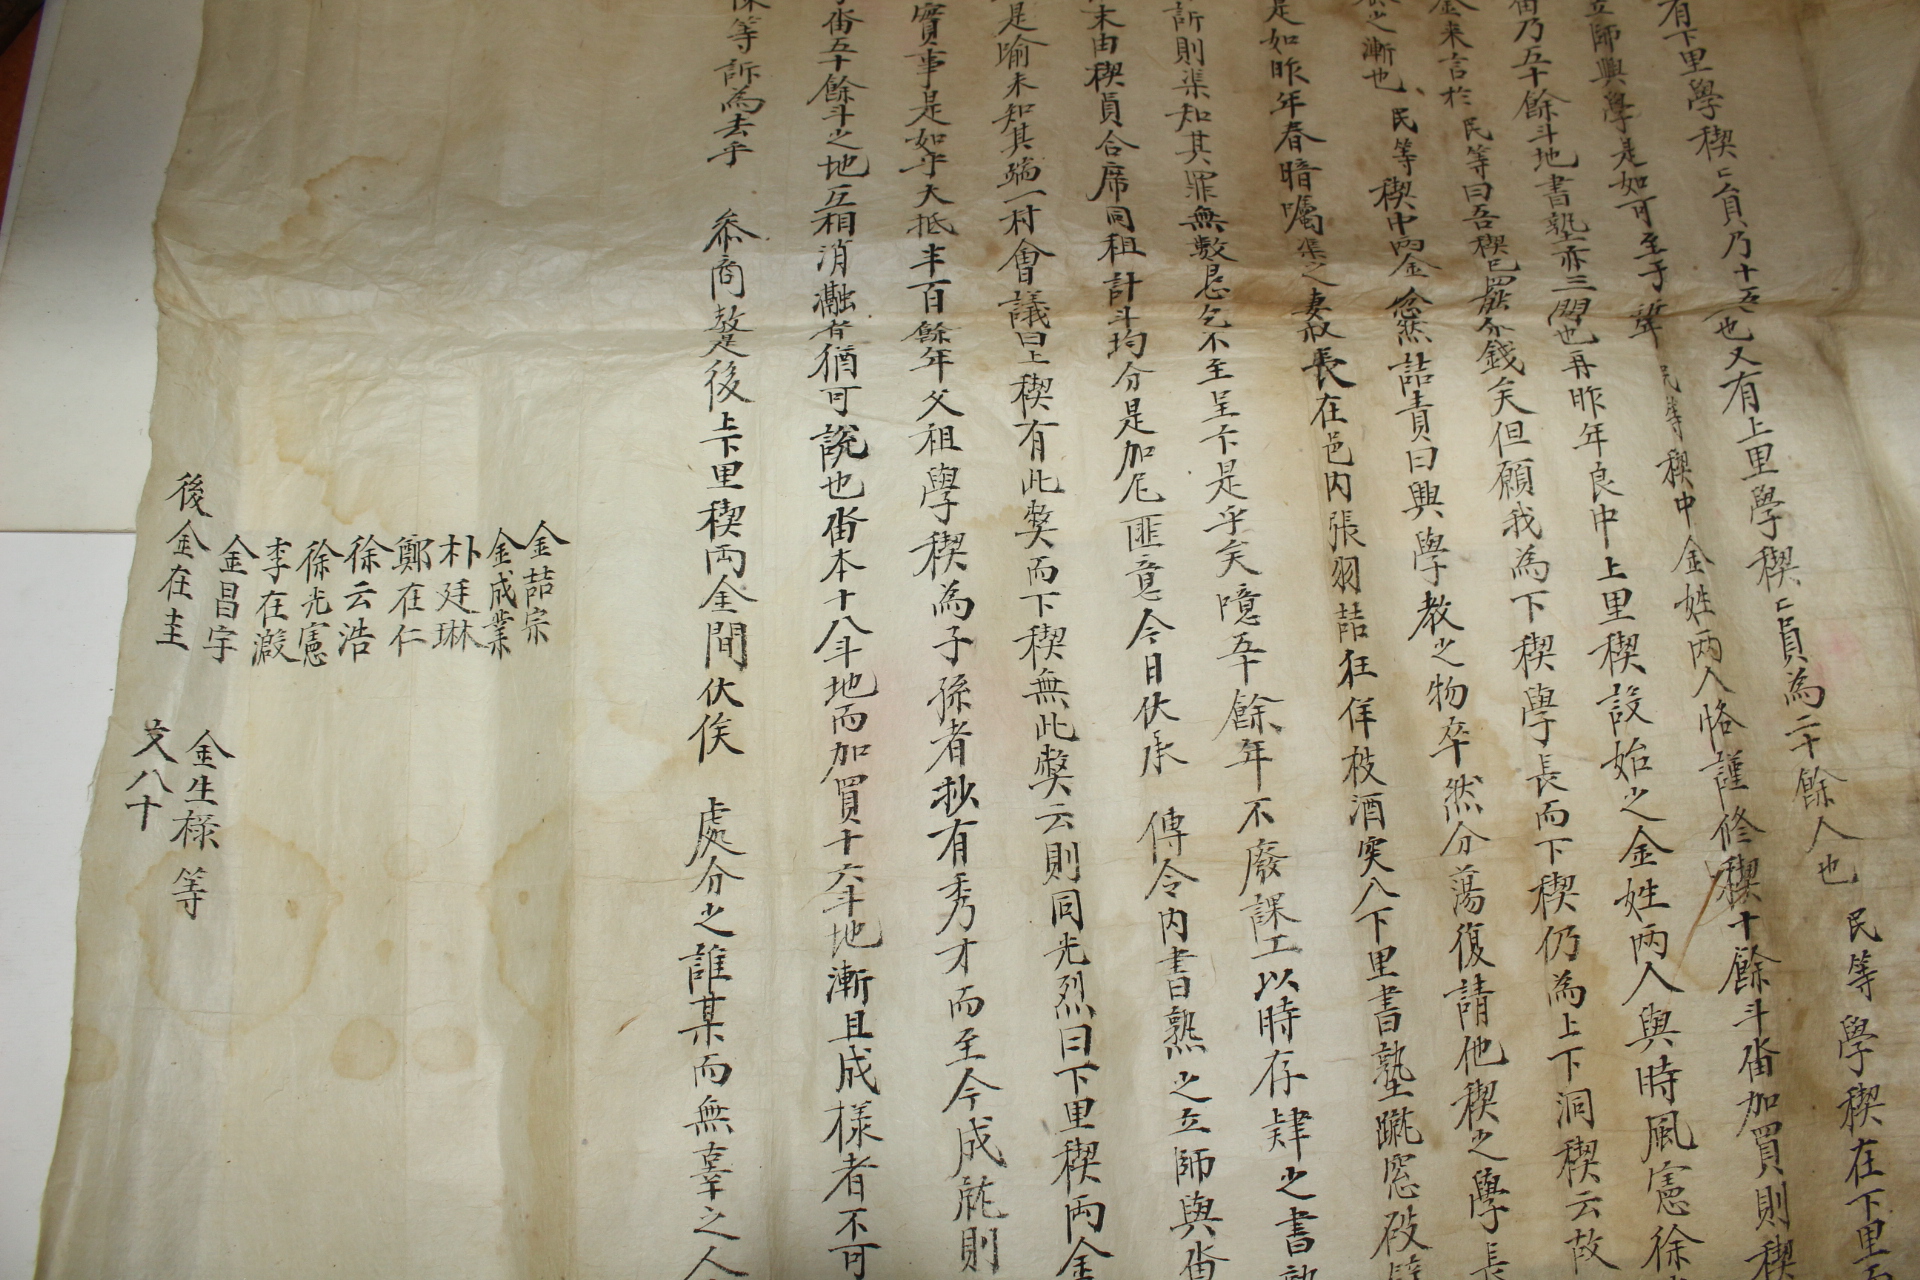 民等學稧在下里
有下里學稧〻員乃十五也又有上里學稧〻員為二十餘人也
立師興學是如可至于 民等稧中金姓兩人恪謹修稧十餘斗畓加買則稧
畓乃五十餘斗地書塾亦三間也再昨年良中上里稧設始之金姓兩人與時風憲徐
金来言於民等曰吾稧已罷分錢矣但願我為下稧學長而下稧仍為上下洞稧云故
之漸也民等稧中兩金忿然詰責曰興學教之物卒然分蕩復請他稧之學長
是如昨年春暗囑渠之妻叔長在邑内張羽喆狂佯被酒突入下里書塾蹴窓破
訴則渠知其罪無數恳乞不至呈卞是乎矣噫五十餘年不廢課工以時存肆之書塾
末由稧員合席同租計斗均分是加尼匪意今日伏承 傳令内書塾之立師與畓
是喻未知其端一村會議曰上稧有此獘而下稧無此獘云則同光烈曰下里稧兩金
實事是如乎大抵半百餘年父祖學稧為子孫者抄有秀才而至今成㲽則
畓五十餘斗之地互相消瀜者猶可說也畓本十八斗地而加買十六斗地漸且成樣者不可
等訴為去乎 叅商敎是後上下里稧兩金間伏俟 處分之誰某而無辜之人
金喆宗
金成業
朴廷琳
鄭在仁
徐云浩
徐光憲
李在瀫
金昌宇
後金在圭
金生様 等
文八十